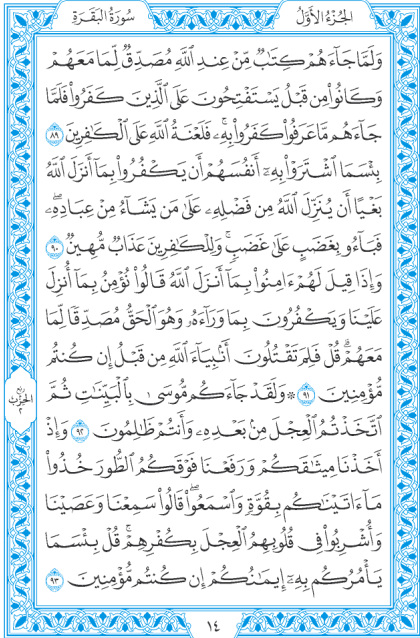 الجُزْءُ الأَوَّلُ
سُورَةُ البَقَرَةِ
وَلَمَّا جَآءَهُمْ كِتَٰبٌ مِّنْ عِندِ ٱللَّهِ مُصَدِّقٌ لِّمَا مَعَهُمْ
وَكَانُوا۟ مِن قَبْلُ يَسْتَفْتِحُونَ عَلَى ٱلَّذِينَ كَفَرُوا۟ فَلَمَّا
جَآءَهُم مَّا عَرَفُوا۟ كَفَرُوا۟ بِهِۦ ۚ فَلَعْنَةُ ٱللَّهِ عَلَى ٱلْكَٰفِرِينَ ٨٩
بِئْسَمَا ٱشْتَرَوْا۟ بِهِۦٓ أَنفُسَهُمْ أَن يَكْفُرُوا۟ بِمَآ أَنزَلَ ٱللَّهُ
بَغْيًا أَن يُنَزِّلَ ٱللَّهُ مِن فَضْلِهِۦ عَلَىٰ مَن يَشَآءُ مِنْ عِبَادِهِۦ ۖ
فَبَآءُو بِغَضَبٍ عَلَىٰ غَضَبٍ ۚ وَلِلْكَٰفِرِينَ عَذَابٌ مُّهِينٌ ٩٠
وَإِذَا قِيلَ لَهُمْ ءَامِنُوا۟ بِمَآ أَنزَلَ ٱللَّهُ قَالُوا۟ نُؤْمِنُ بِمَآ أُنزِلَ
عَلَيْنَا وَيَكْفُرُونَ بِمَا وَرَآءَهُۥ وَهُوَ ٱلْحَقُّ مُصَدِّقًا لِّمَا
مَعَهُمْ ۗ قُلْ فَلِمَ تَقْتُلُونَ أَنۢبِيَآءَ ٱللَّهِ مِن قَبْلُ إِن كُنتُم
مُّؤْمِنِينَ ٩١ ۞ وَلَقَدْ جَآءَكُم مُّوسَىٰ بِٱلْبَيِّنَٰتِ ثُمَّ
ٱتَّخَذْتُمُ ٱلْعِجْلَ مِنۢ بَعْدِهِۦ وَأَنتُمْ ظَٰلِمُونَ ٩٢ وَإِذْ
أَخَذْنَا مِيثَٰقَكُمْ وَرَفَعْنَا فَوْقَكُمُ ٱلطُّورَ خُذُوا۟
مَآ ءَاتَيْنَٰكُم بِقُوَّةٍ وَٱسْمَعُوا۟ ۖ قَالُوا۟ سَمِعْنَا وَعَصَيْنَا
وَأُشْرِبُوا۟ فِى قُلُوبِهِمُ ٱلْعِجْلَ بِكُفْرِهِمْ ۚ قُلْ بِئْسَمَا
يَأْمُرُكُم بِهِۦٓ إِيمَٰنُكُمْ إِن كُنتُم مُّؤْمِنِينَ ٩٣
ربع
الحزب
٢
١٤